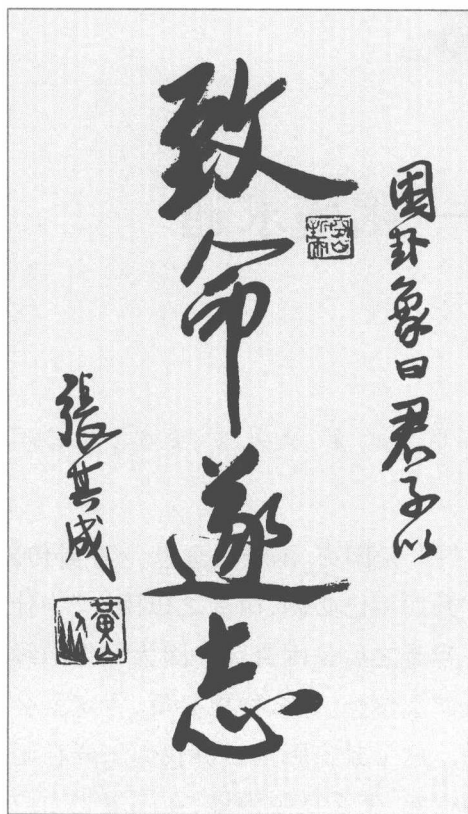 困卦象曰君子以
致命遂志
張其成
黄山